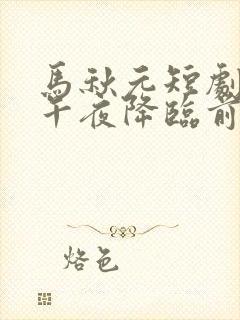 馬秋元短劇
午夜降臨前
烙色